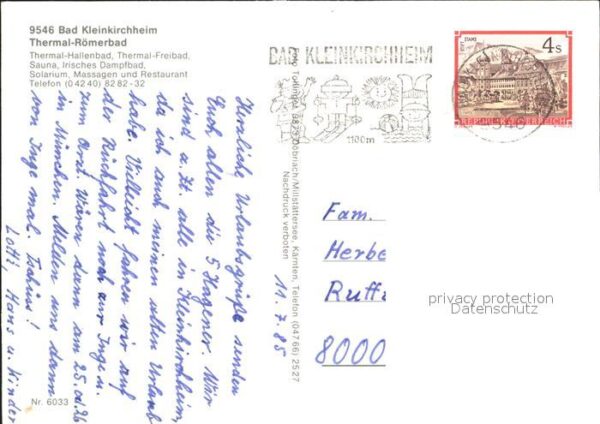 9546 Bad Kleinkirchheim
Thermal-Römerbad
Thermal-Hallenbad, Thermal-Freibad,
Sauna, Irisches Dampfbad,
Solarium, Massagen und Restaurant
Telefon (0 42 40) 82 82 - 32
Herzliche Urlaubsgrüße senden
Euch allen die 5 Hagener. Wir
sind z. Zt. alle in Kleinkirchheim,
da ich auch meinen alten Urlaub
habe. Vielleicht fahren wir auf
der Rückfahrt noch zur Inge u.
zum Orst. Wären dann am 25. od. 26
in München. Melden uns dann
von Inge mal. Tschüs!
Lotti, Hans u. Kinder
Nr. 6033
Döbriach/Millstättersee, Kärnten, Telefon (0 47 66) 25 27
Nachdruck verboten
BAD KLEINKIRCHHEIM
1100m
STAMS
4 S
REPUBLIK ÖSTERREICH
9546
11.7.85
Fam.
Herbe
Ruff
8000
privacy protection
Datenschutz